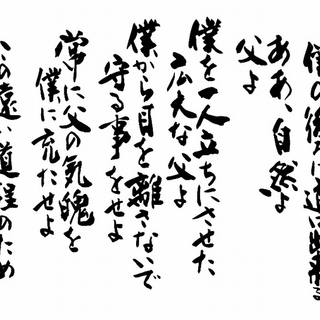 僕の後ろに道は出来る
ああ、自然よ
父よ
僕を一人立ちにさせた
広大な父よ
僕から目を離さないで
守る事をせよ
常に父の気魄を
僕に充たせよ
この遠い道程のため